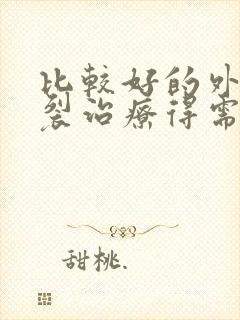 比較好的外
裂治療得需
甜桃.